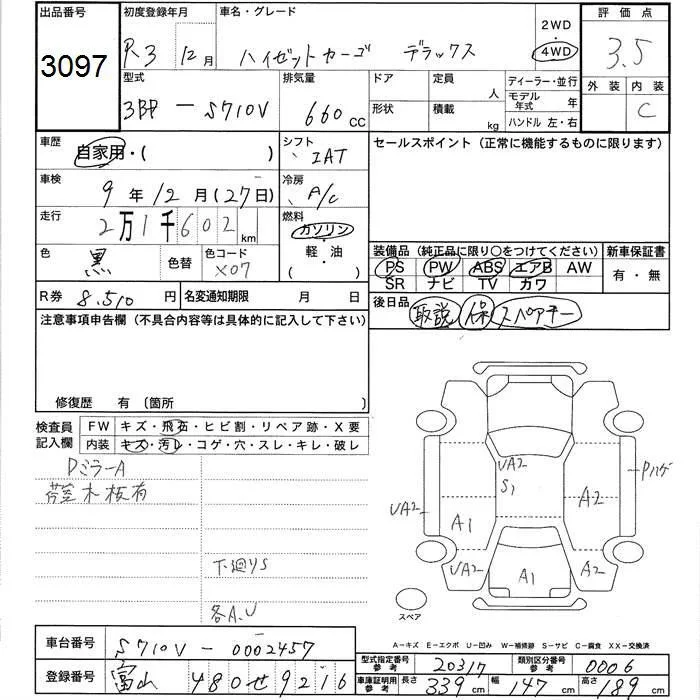 出品番号 初度登録年月 車名・グレード 2WD 評価点
3097 R3 12月 ハイゼットカーゴ デラックス 4WD 3.5
型式 排気量 ドア 定員 人 ディーラー・並行 外装 内装
3BD-S710V 660cc 形状 積載 kg モデル年式 年 C
ハンドル 左・右
車歴 自家用・( ) シフト IAT セールスポイント (正常に機能するものに限ります)
車検 9年12月(27日) 冷房 A/C
走行 2万1千602km 燃料 ガソリン・軽・油 ( )
色 黒 色替 色コード X07
装備品 (純正品に限り〇をつけてください) 新車保証書
PS PW ABS エアB AW 有・無
SR ナビ TV カワ
R券 8.510円 名変通知期限 月 日 後日品 取説 保 スペアキー
注意事項申告欄 (不具合内容等は具体的に記入して下さい)
修復歴 有 (箇所
検査員記入欄 FW キズ・飛石・ヒビ割・リペア跡・X要
内装 キズ・汚レ・コゲ・穴・スレ・キレ・破レ
DミラーA
荷室木板有
下廻りS
各A.U
UA2
S1
Pハゲ
UA2
A1
A2
UA2
A1
A2
スペア
A-キズ E-エクボ U-凹み W-補修跡 S-サビ C-腐食 XX-交換済
車台番号 S710V-0002457
登録番号 富山 480 せ 9216
型式指定番号 参考 20317 類別区分番号 参考 0006
車庫証明用 参考 長さ 339 幅 147 高さ 189